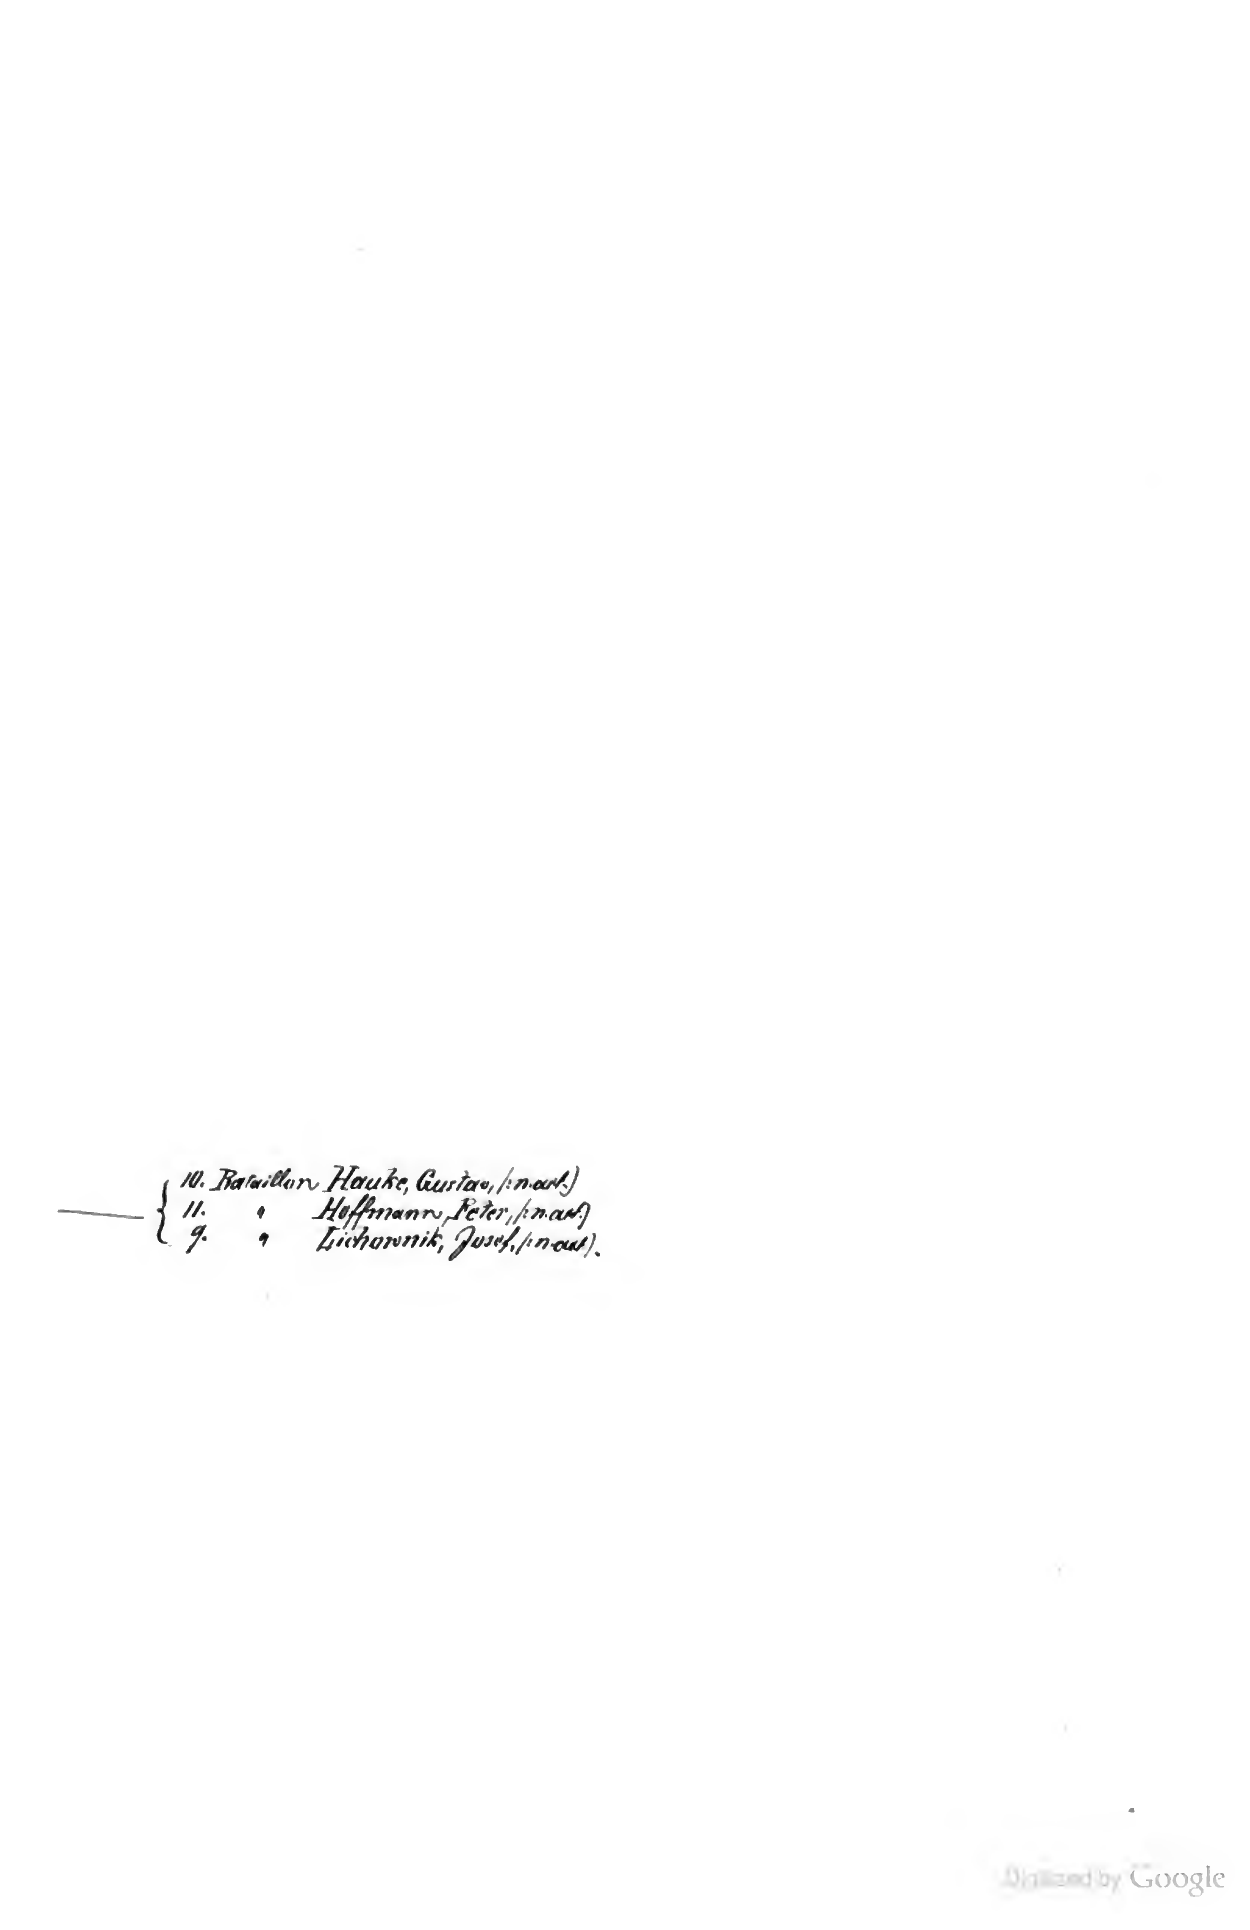 10. Bataillon Hauke, Gustav,
11. " Hoffmann, Peter,
9. " Lichownik, Josef,
Digitized by Google